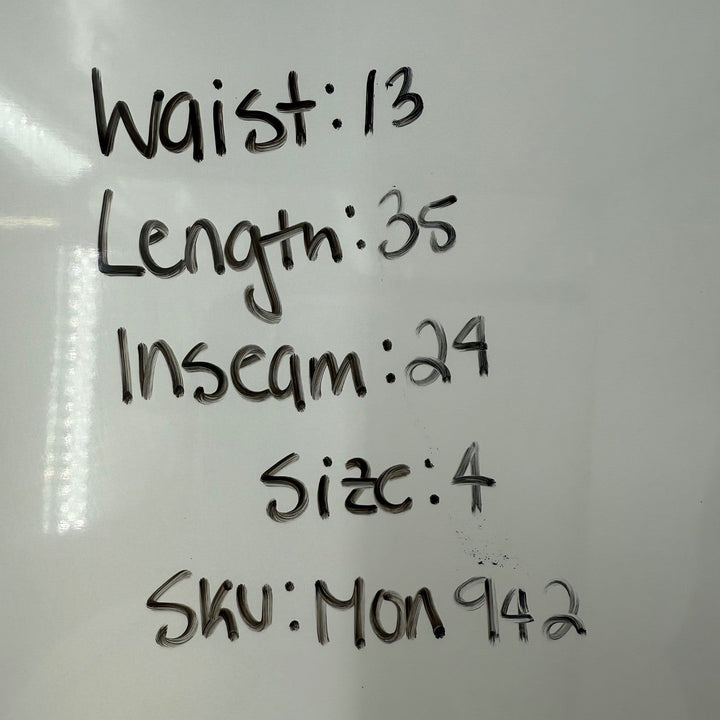 Waist: 13
Length: 35
Inseam: 24
Size: 4
SKU: Mon 942